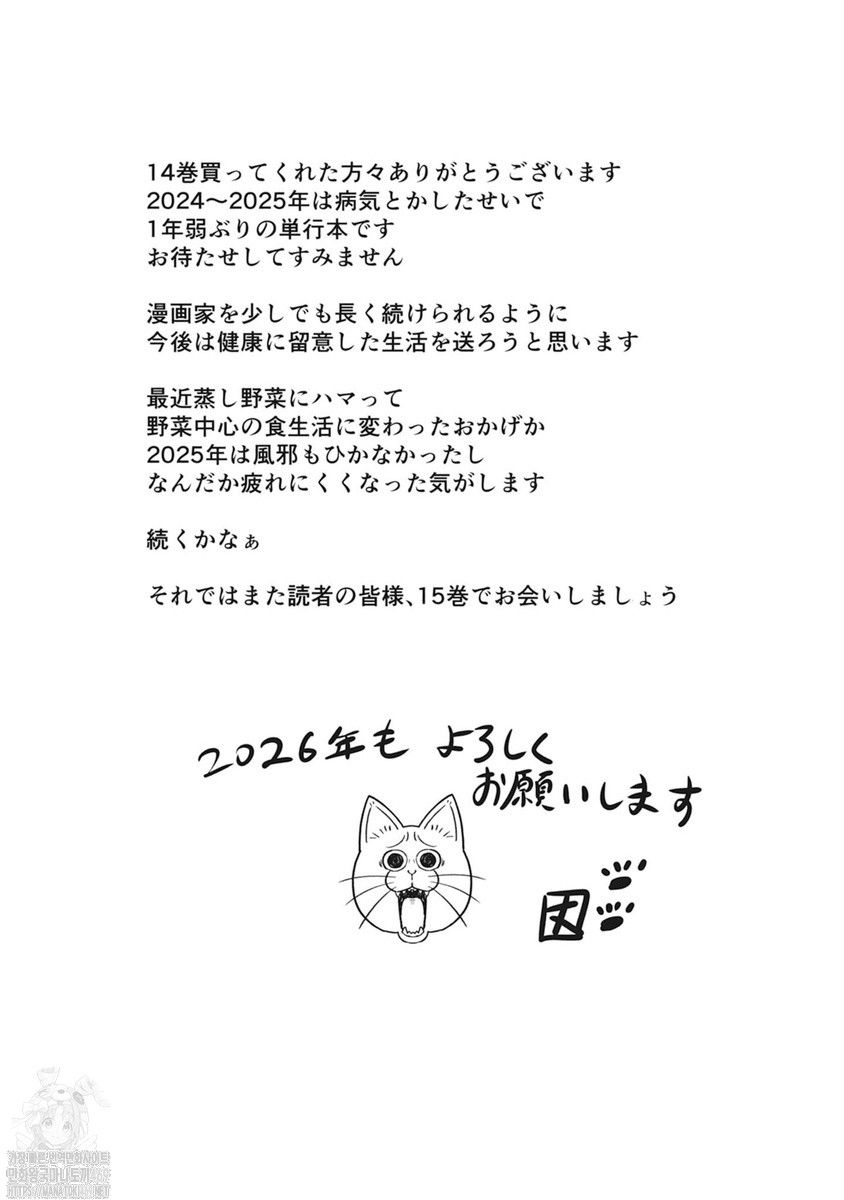 14巻買ってくれた方々ありがとうございます
2024〜2025年は病気とかしたせいで
1年弱ぶりの単行本です
お待たせしてすみません
漫画家を少しでも長く続けられるように
今後は健康に留意した生活を送ろうと思います
最近蒸し野菜にハマって
野菜中心の食生活に変わったおかげか
2025年は風邪もひかなかったし
なんだか疲れにくくなった気がします
続くかなぁ
それではまた読者の皆様、15巻でお会いしましょう
2026年も よろしく
お願いします
因
가장 빠른 번역만화사이트
만화왕국 마나토끼469
HTTPS://MANATOKI469.NET